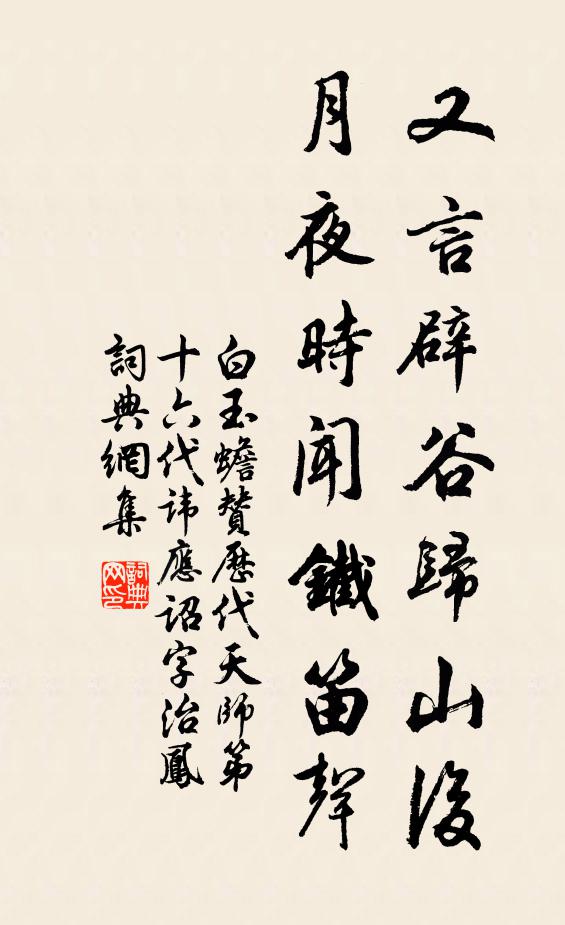 又言辟谷歸山後
月夜時聞鐵笛聲
白玉蟾贊歷代天師第
十六代諱應詔字治鳳
詞典網集
詞典
网印